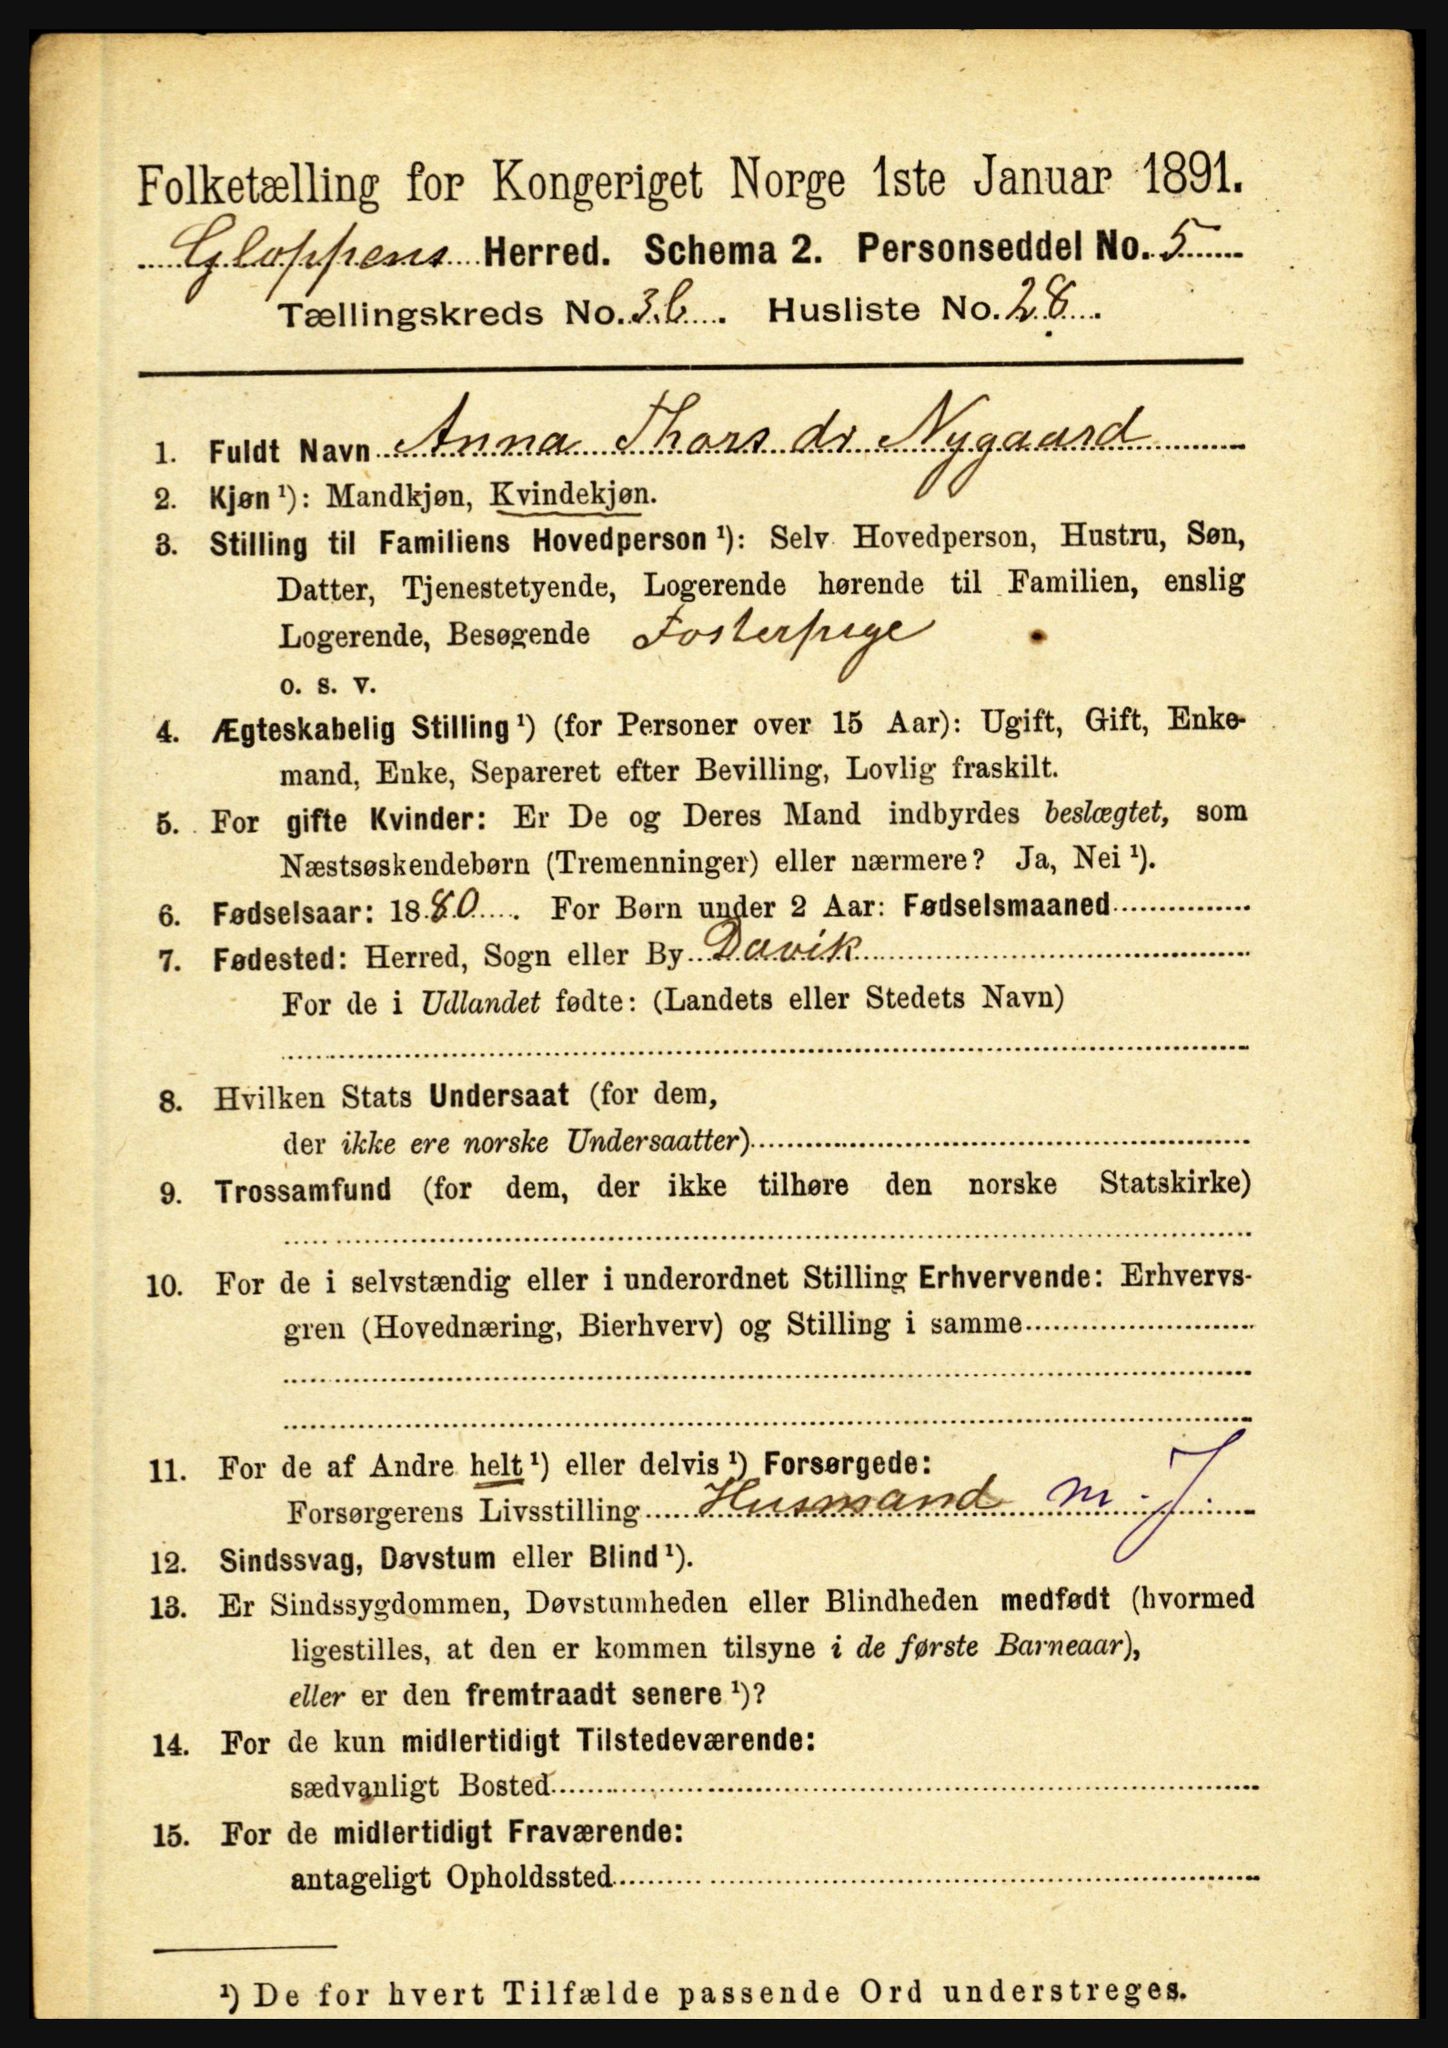 Folketælling for Kongeriget Norge 1ste Januar 1891.
Gloppens Herred. Schema 2. Personseddel No. 5
Tællingskreds No. 3b. Husliste No. 28.
1. Fuldt Navn Anna Thorsdr Nygaard
2. Kjøn ¹): Mandkjøn, Kvindekjøn.
3. Stilling til Familiens Hovedperson ¹): Selv Hovedperson, Hustru, Søn,
Datter, Tjenestetyende, Logerende hørende til Familien, enslig
Logerende, Besøgende Fosterpige
o. s. v.
4. Ægteskabelig Stilling ¹) (for Personer over 15 Aar): Ugift, Gift, Enke-
mand, Enke, Separeret efter Bevilling, Lovlig fraskilt.
5. For gifte Kvinder: Er De og Deres Mand indbyrdes beslægtet, som
Næstsøskendebørn (Tremenninger) eller nærmere? Ja, Nei ¹).
6. Fødselsaar: 1880. For Børn under 2 Aar: Fødselsmaaned
7. Fødested: Herred, Sogn eller By Davik
For de i Udlandet fødte: (Landets eller Stedets Navn)
8. Hvilken Stats Undersaat (for dem,
der ikke ere norske Undersaatter)
9. Trossamfund (for dem, der ikke tilhøre den norske Statskirke)
10. For de i selvstændig eller i underordnet Stilling Erhvervende: Erhvervs-
gren (Hovednæring, Bierhverv) og Stilling i samme
11. For de af Andre helt ¹) eller delvis ¹) Forsørgede:
Forsørgerens Livsstilling Husmand m. J.
12. Sindssvag, Døvstum eller Blind ¹).
13. Er Sindssygdommen, Døvstumheden eller Blindheden medfødt (hvormed
ligestilles, at den er kommen tilsyne i de første Barneaar),
eller er den fremtraadt senere ¹)?
14. For de kun midlertidigt Tilstedeværende:
sædvanligt Bosted
15. For de midlertidigt Fraværende:
antageligt Opholdssted
¹) De for hvert Tilfælde passende Ord understreges.